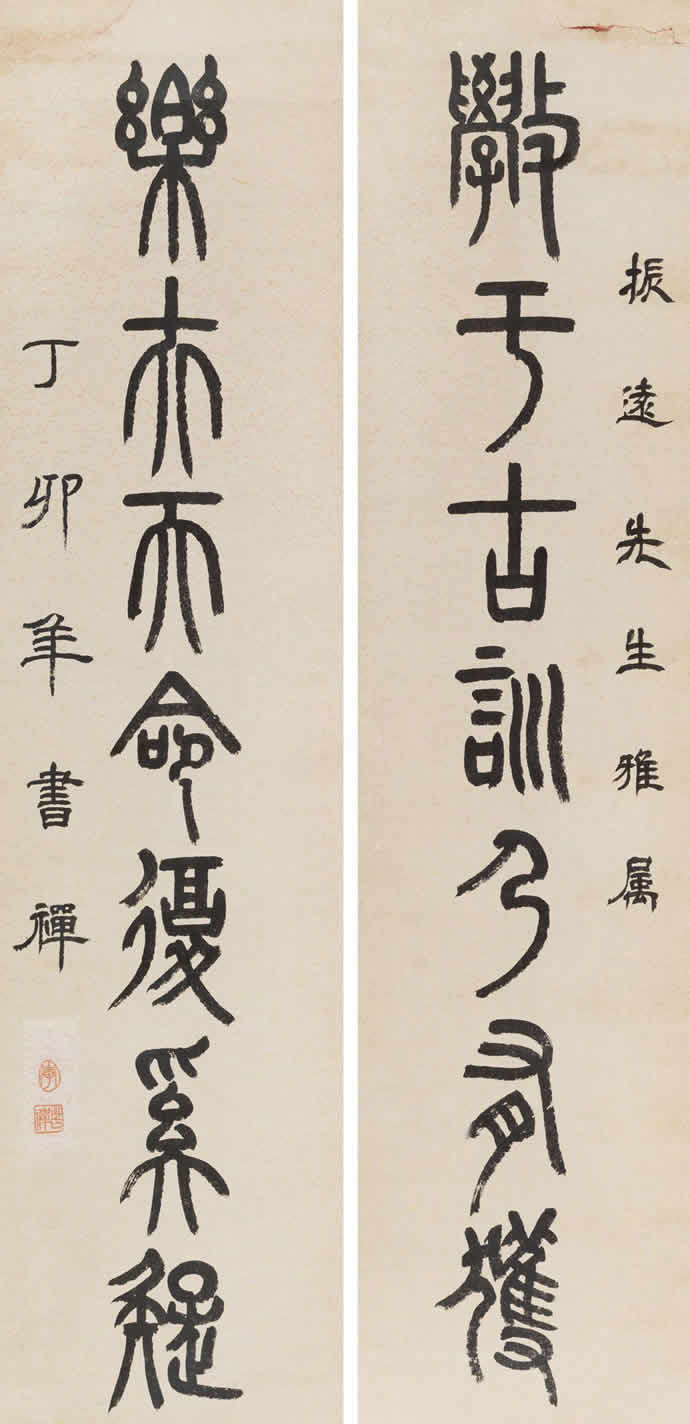 振遠先生雅属
斆于古訓乃有獲
樂夫天命復奚疑
丁卯年書禪